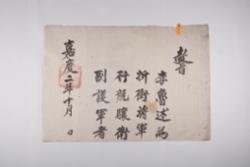 敎旨
李魯述為
折衝將軍
行龍驤衛
副護軍者
嘉慶二年十月 日